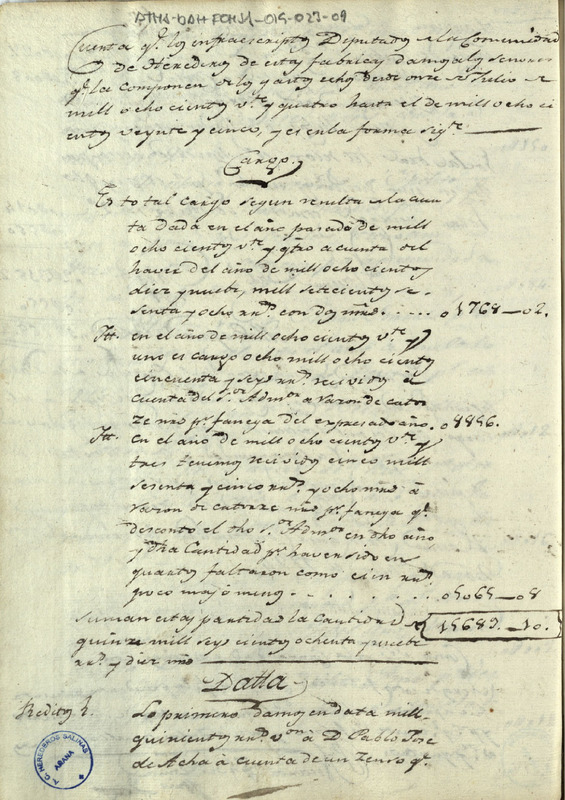 ATHA-DAH-FCHSA-015-023-09
Cuenta q.e los enfraescriptos Diputados de la Comunidad
de Herederos de estas fabricas damos a los señores
q.e la componen de los gastos echos desde onze de Julio de
mill ocho cientos v.te y quatro hasta el de mill ocho ci
entos veynte y cinco, y es en la forma sig.te
Cargo
Es total cargo segun resulta de la cuen
ta dada en el año pasado de mill
ocho cientos v.te y qtro a cuenta del
haver del año de mill ocho cientos
diez y nuebe, mill setecientos se-
senta y ocho rr.s con dos mrs. . . . . o 1768_02.
Itt. en el año de mill ocho cientos v.te y
uno es cargo ocho mill ocho cientos
cincuenta y seys rr.s recividos a
cuenta del S.or Adm.or a razon de cator
ze mrs p.r fanega del expresado año. o 8856.
Itt. en el año de mill ocho cientos v.te y
tres tenemos recivido cinco mill
sesenta y cinco rr.s y ocho mrs a
razon de catorze mrs p.r fanega q.e
desconto el dho S.or Adm.or en dho año
y dha Cantidad p.r haver sido en
quartos faltaron como cien rr.s
poco mas o menos . . . . . . . o 5065_08
Suman estas partidas la Cantidad de 15689_10.
quinze mill seys cientos ochenta y nuebe
rr.s y diez mrs
Datta
Reditos
Lo primero damos en data mill
quinientos rr.s v.on a D. Pablo Jose
de Acha a cuenta de un Zenso q.e
A.C. HEREDEROS SALINAS
AÑANA